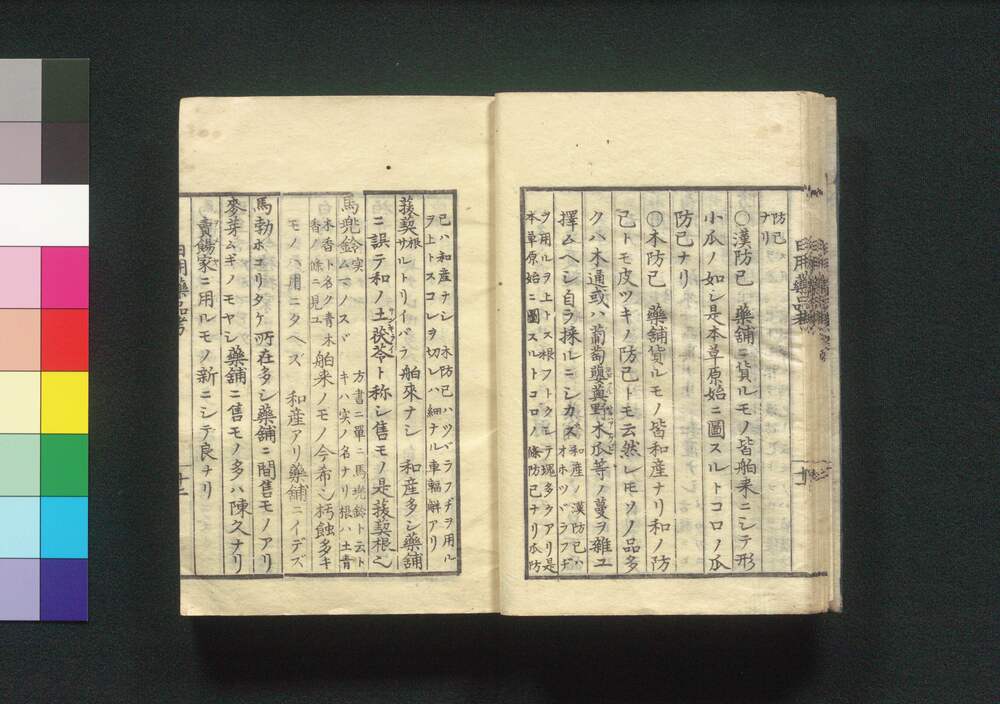 防已
ナリ
○漢防已　藥舗ニ貨ルモノ皆舶来ニシテ形
小瓜ノ如シ是本草原始ニ圖スルトコロノ瓜
防已ナリ
○木防已　藥舗貨ルモノ皆和産ナリ和ノ防
已トモ皮ツキノ防已トモ云然レ𪜈ソノ品多
クハ木通或ハ葡萄蘡薁野木瓜等ノ蔓ヲ雜ユ
擇ムヘシ自ラ採ルニシカズ
和産ノ漢防已ハ
オホツヾラフヂ
ヲ用ルヲ上トス根フトクシテ塊多クアリ是
本草原始ニ圖スルトコロノ
防已ナリ瓜防
日用藥品考
已ハ和産ナシ　木防已ハツヾラフヂヲ用ル
ヲ上トスコレヲ切レハ細ナル車輻解アリ
菝葜根サルトリイバラ　舶來ナシ　和産多シ藥舗
ニ誤テ和ノ土茯苓ト称シ售モノ是菝葜根也
馬兜鈴実ムマノスヾ
方書ニ單ニ馬兜鈴ト云ト
キハ実ノ名ナリ根ハ土青
木香ト名ク青木
香ノ條ニ見ユ
舶来ノモノ今希ニ朽蝕多キ
モノハ用ニタヘズ　和産アリ藥舗ニイデズ
馬勃ホコリタケ　所在多シ藥舗ニ間售モノアリ
麥芽ムギノモヤシ　藥舗ニ售モノ多ハ陳久ナリ
賣餳家ニ用ルモノ新ニシテ良ナリ
日用藥品考
十二